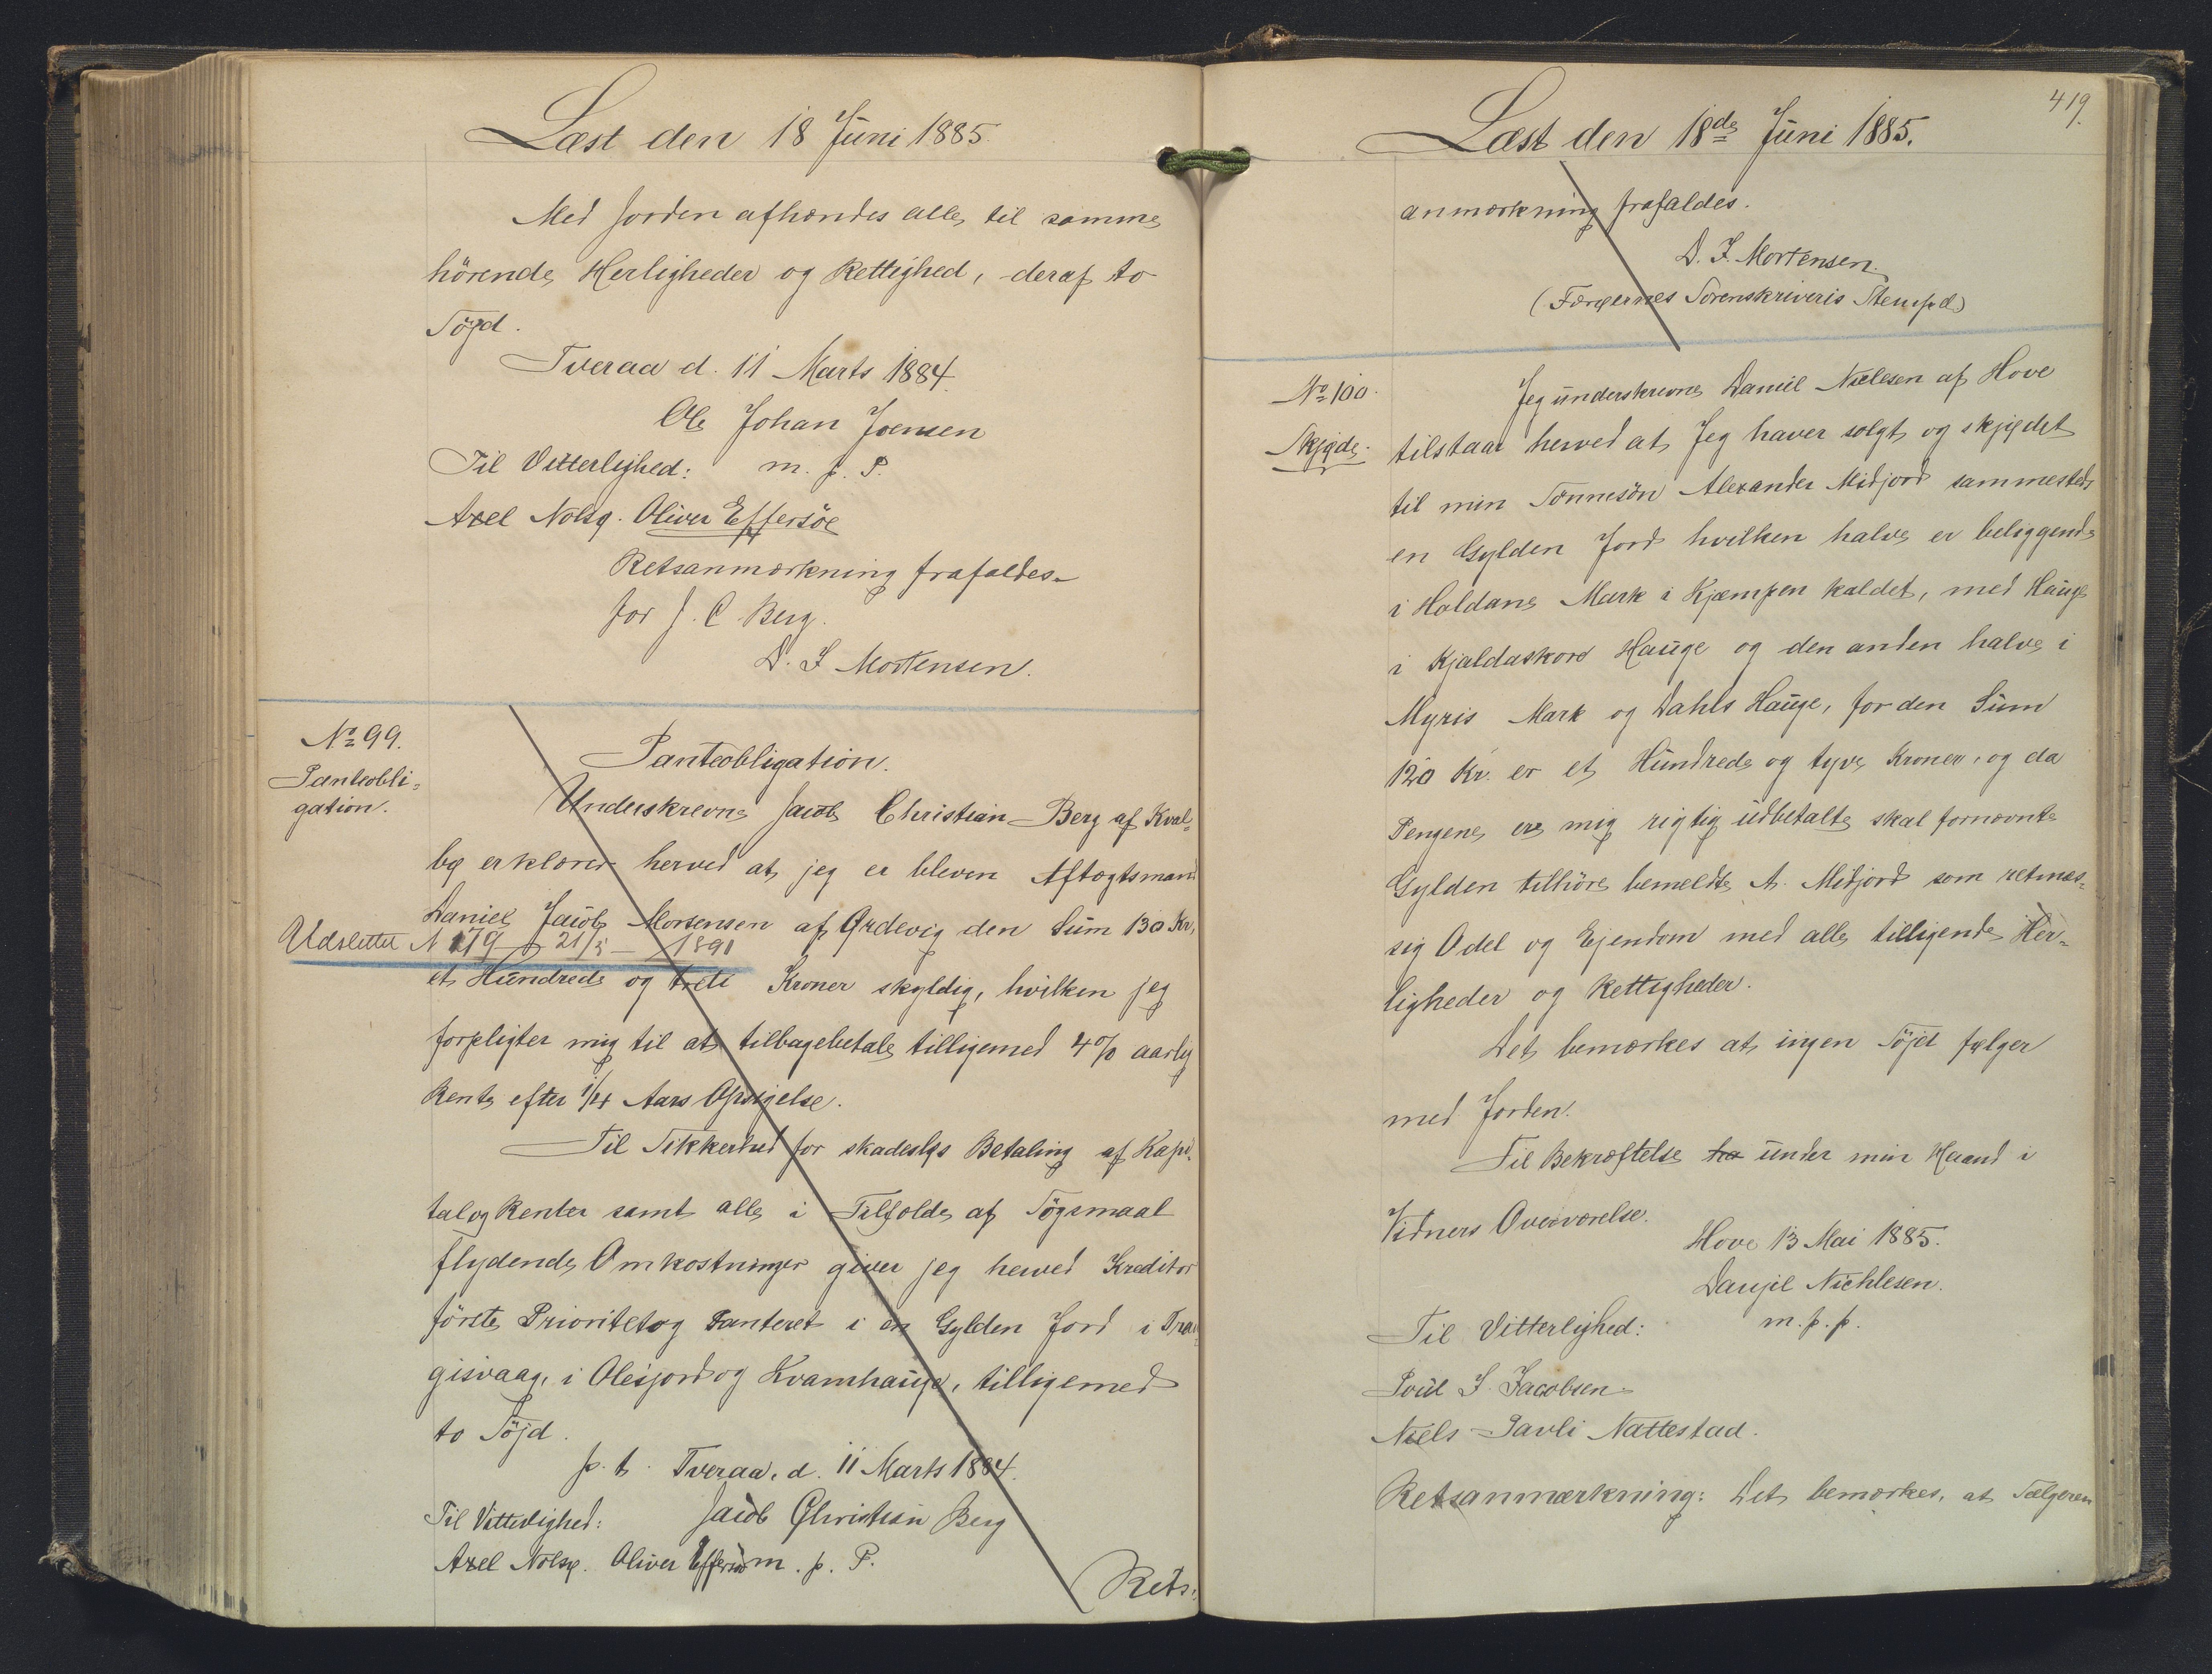 Læst den 18 Juni 1885.
Med Jorden afhændes alle til samme
hörende Herligheder og Rettighed, deraf to
Söjd.
Tveraa d. 11 Marts 1884.
Ole Johan Joensen
Til Vitterlighed: m. p. P.
Axel Nolsø. Oliver Effersöe
Retsanmærkning frafaldes.
for J. C. Berg.
D. J. Mortensen.
No 99.
Panteobli=
gation.
Panteobligation.
Underskrevne Jacob Christian Berg af Kval=
bø erklærer herved at jeg er bleven Aftægtsmand
Daniel Jacob Mortensen af Ørdevig den Sum 130 Kr,
Udslettet N 179 21/5 1891
et Hundrede og treti Kroner skyldig, hvilken jeg
forpligter mig til at tilbagebetale tilligemed 4% aarlig
Rente efter 1/4 Aars Opsigelse.
Til Sikkerhed for skadesløs Betaling af Kapi=
tal og Renter samt alle i Tilfælde af Søgsmaal
flydende Omkostninger giver jeg herved Kreditor
förste Prioritet og Panteret i en Gylden Jord i Tran=
gisvaag, i Olesjord og Kvamhauge, tilligemed
to Söjd.
p. t. Tveraa, d. 11 Marts 1884.
Til Vitterlighed: Jacob Christian Berg
Axel Nolsø. Oliver Effersöe m. p. P.
Rets=
419.
Læst den 18de Juni 1885.
anmærkning frafaldes.
D. J. Mortensen.
(Færøernes Sorenskriveris Stempel)
No 100.
Skjøde.
Jeg underskrevne Daniel Nielesen af Hove
tilstaar herved at Jeg haver solgt og skjødet
til min Sønnesön Alexander Midjord sammesteds
en Gylden Jord hvilken halve er beliggende
i Haldans Mark i Kjæmpen kaldet, med Hauge
i Kjaldaskoro Hauge og den anden halve i
Myris Mark og Dahls Hauge, for den Sum
120 Kr. er et Hundrede og tyve Kroner, og da
Pengene ere mig rigtig udbetalte skal fornævnte
Gylden tilhöre bemeldte A. Midjord som retmæs=
sig Odel og Ejendom med alle tilligende Her=
ligheder og Rettigheder.
Det bemærkes at ingen Söjd følger
med Jorden.
Til Bekræftelse ha under min Haand i
Vidners Overværelse.
Hove 13 Mai 1885.
Danjel Nichlesen.
Til Vitterlighed: m. p. p.
Poul J. Jacobsen
Niels Pavli Nattestad.
Retsanmærkning: Det bemærkes, at Sælgeren